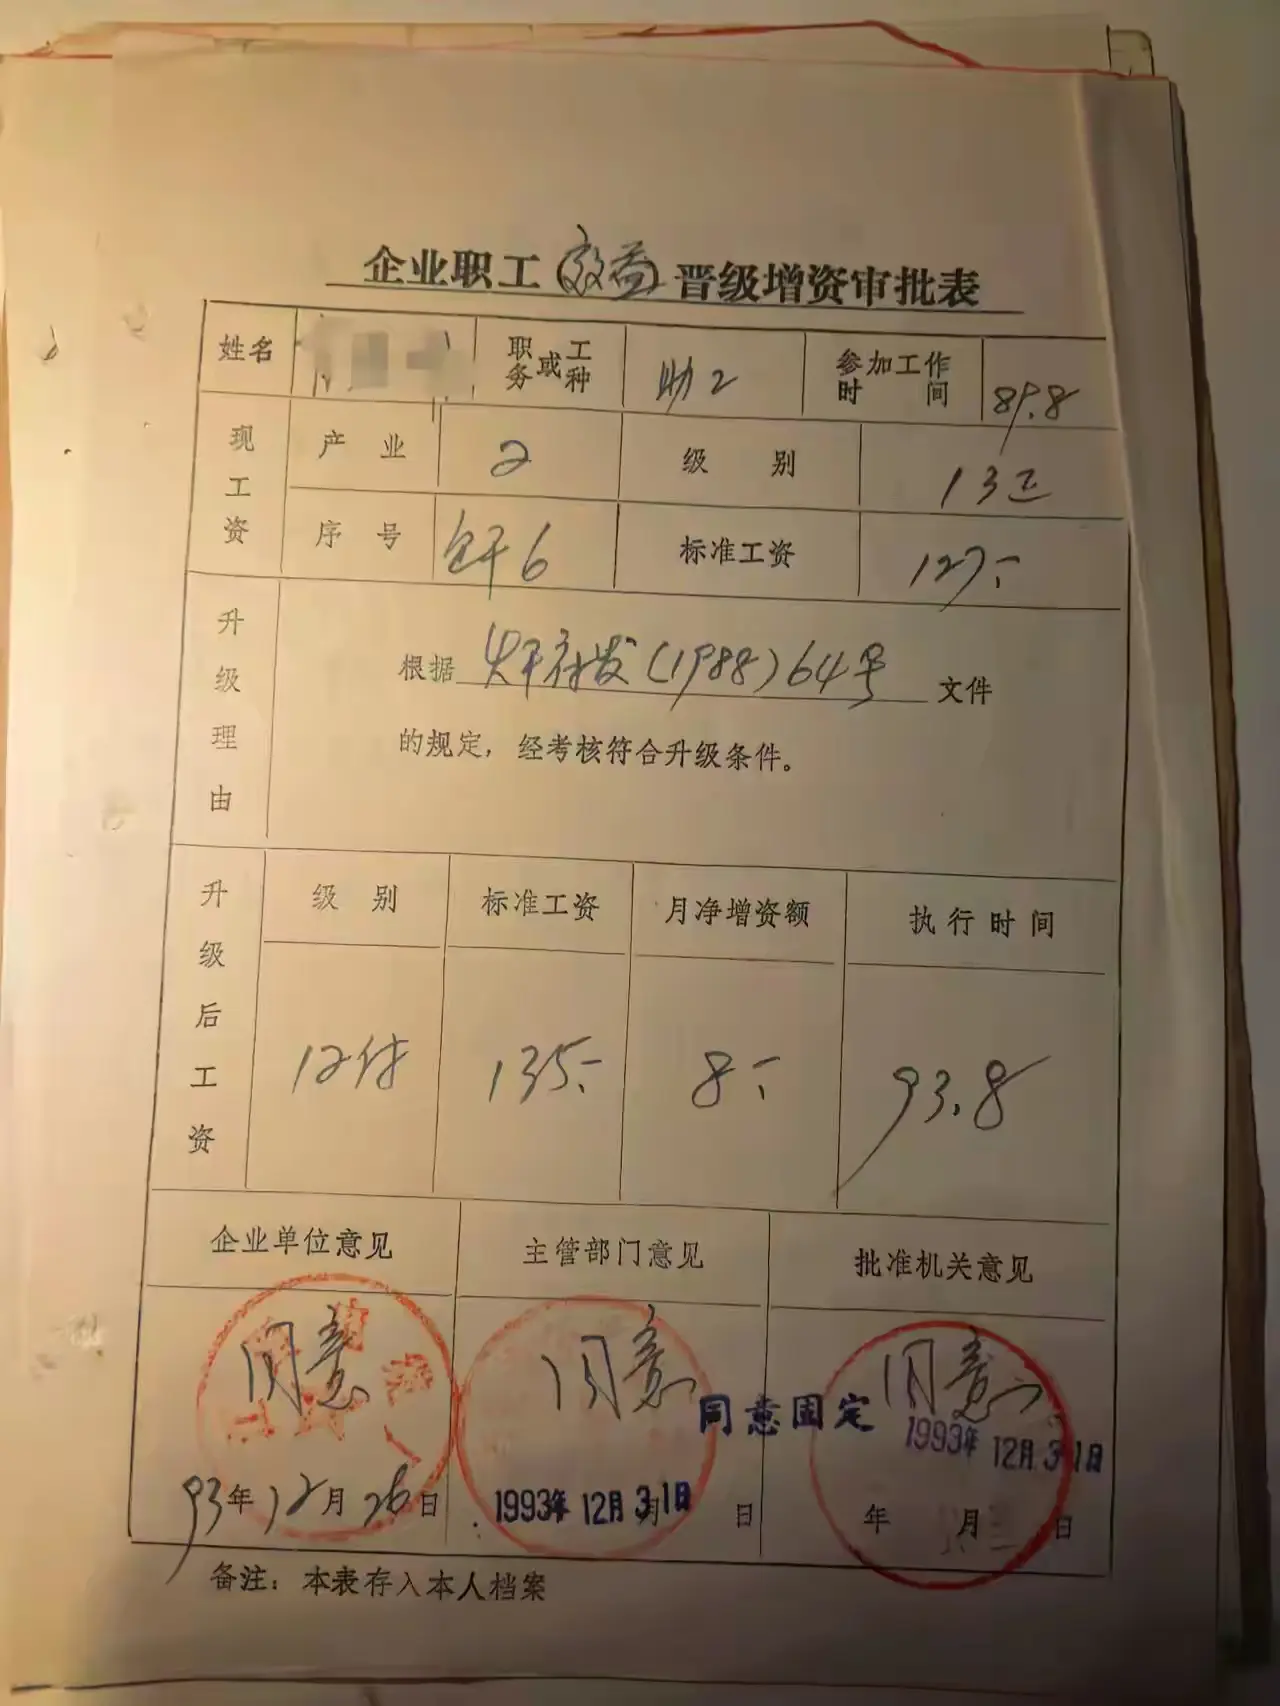 企业职工(效益)晋级增资审批表
姓名 职务或工种 助工 参加工作时间 89.8
现工资 产业 2 级别 13正
序号 干6 标准工资 127.-
升级理由
根据 (1988)64号 文件
的规定，经考核符合升级条件。
升级后工资 级别 标准工资 月净增资额 执行时间
12付 135.- 8.- 93.8
企业单位意见 主管部门意见 批准机关意见
同意 同意 同意
同意固定 1993年12月31日
93年12月26日 1993年12月31日 月 日 年 月 日
备注：本表存入本人档案